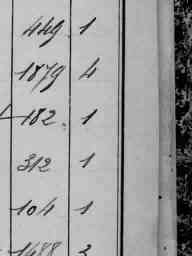 449. 1
1879 4
182. 1
312 1
104 1
1488 2